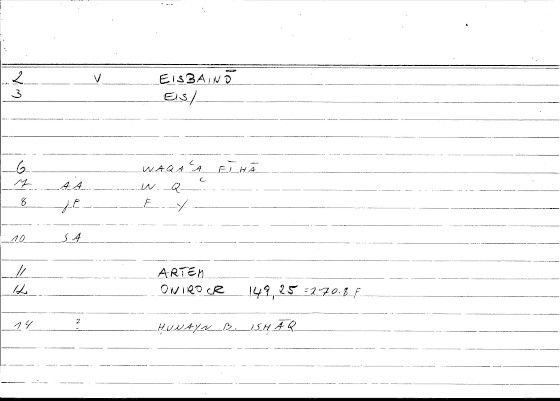 2 V EISBAINŌ
3 EIS/
6 WAQAʿA FĪHĀ
7 AA W Q ʿ
8 jP F Y
10 SA
11 ARTEM
12 ONIROCR 149,25 =270.8 F
14 ? HUNAYN B. ISHĀQ